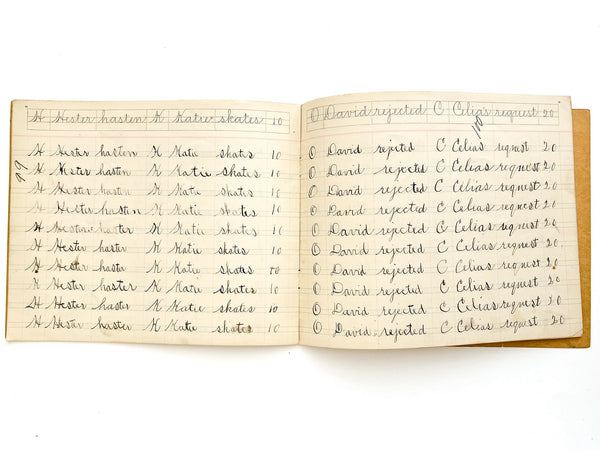 H Hester hasten K Katie skates 10
99
H Hester hasten K Katie skates 10
H Hester hasten K Katie skates 10
H Hester hasten K Katie skates 10
H Hester hasten K Katie skates 10
H Hester haster K Katie skates 10
H Hester haster K Katie skates 10
H Hester haste K Katie skates 10
H Hester harster K Katie skates 10
H Hester haster K Katie skates 10
H Hester haster K Katie skates 10
O David rejected C Celia's request 20
100
O David rejcted C Celias request 20
O David rejected C Celias request 20
O David rejected C Celias request 20
O David rejected C Celias request 20
O David rejected C Celias request 20
O David rejected C Celias request 20
O David rejected C Celias request 20
O David rejected C Celias request 20
O David rejected C Celias request 20
O David rejected C Celias request 20